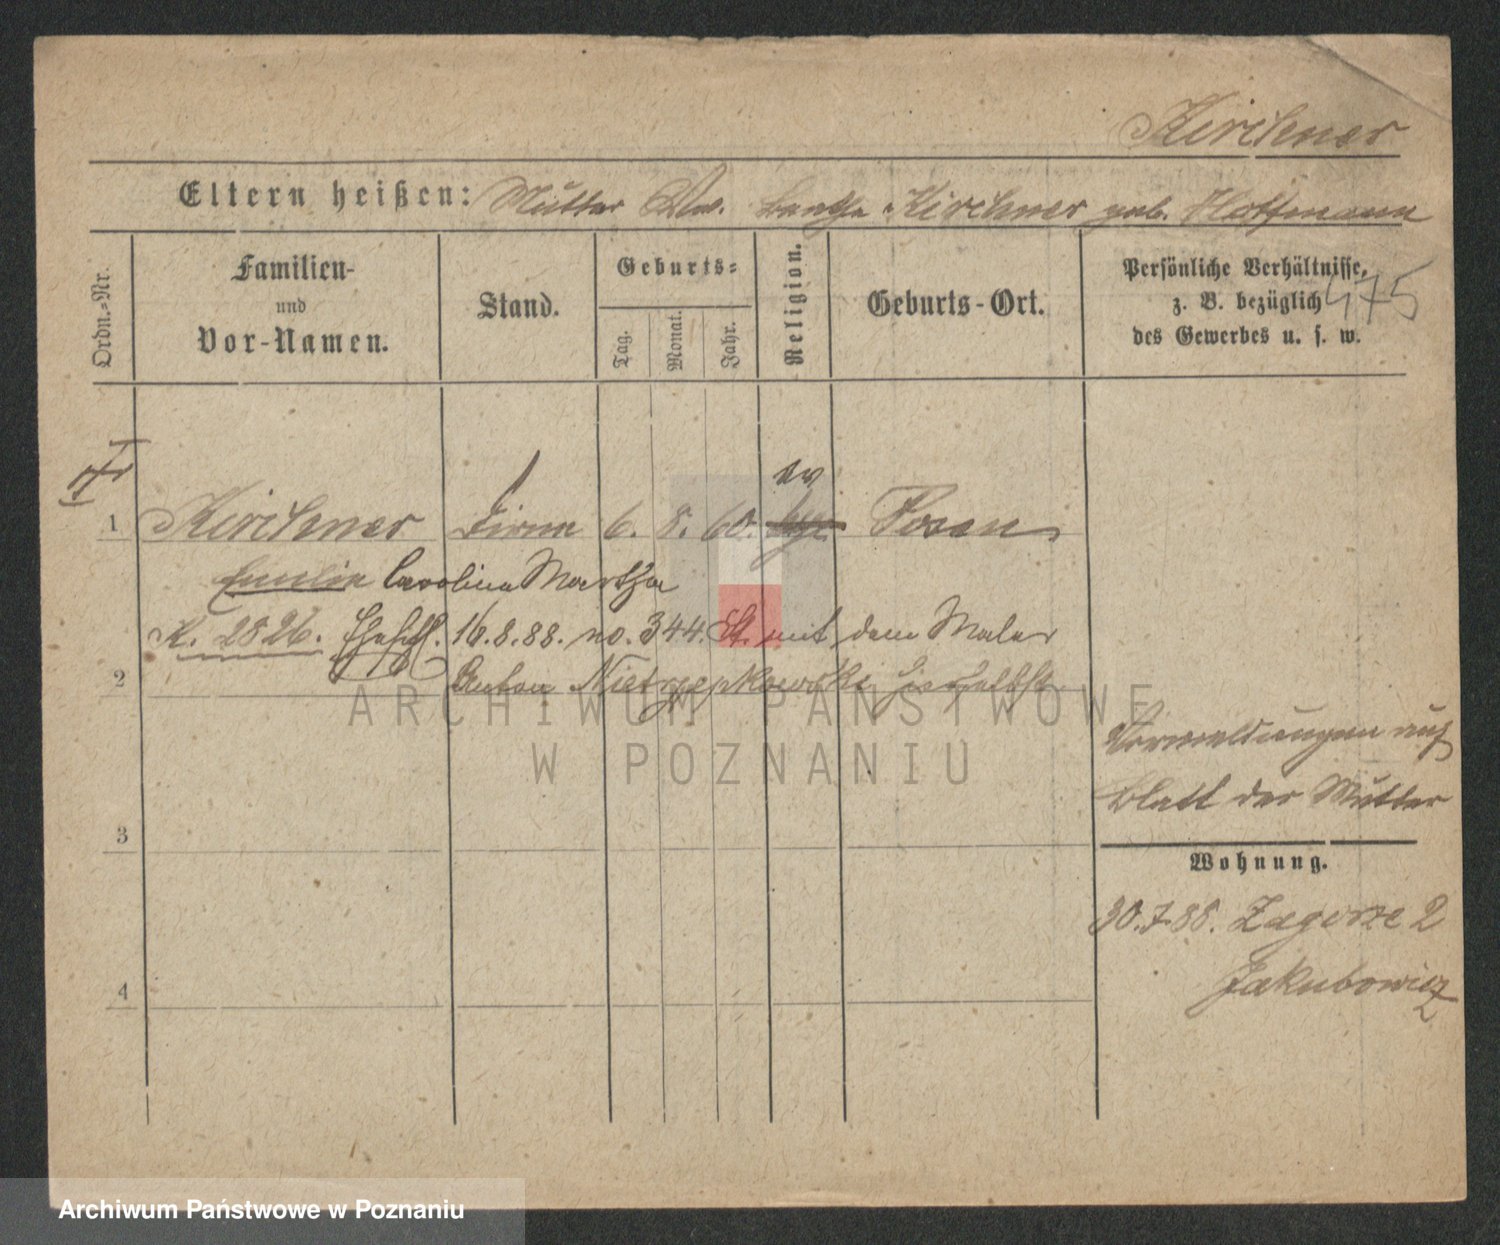 Kirchner
Eltern heißen: Mutter Ww. Kirchner geb. Hoffmann
Ordn.-Nr.
Familien-
und
Vor-Namen.
Stand.
Geburts-
Tag.
Monat.
Jahr.
Religion.
Geburts-Ort.
Persönliche Verhältnisse,
z. B. bezüglich
des Gewerbes u. s. w.
475
ev
1 Kirchner Dirne 6. 8. 60. Posen
Emilie Carolina Martha
K. 2826. Ehesch. 16.8.88. no. 344. St. mit dem Maler
2 Anton Nietrzepkowski hierselbst
Vormeldungen auf
Blatt der Mutter
3
Wohnung.
30.7.88. Zagorze 2
Jakubowicz
4
ARCHIWUM PAŃSTWOWE
W POZNANIU
Archiwum Państwowe w Poznaniu